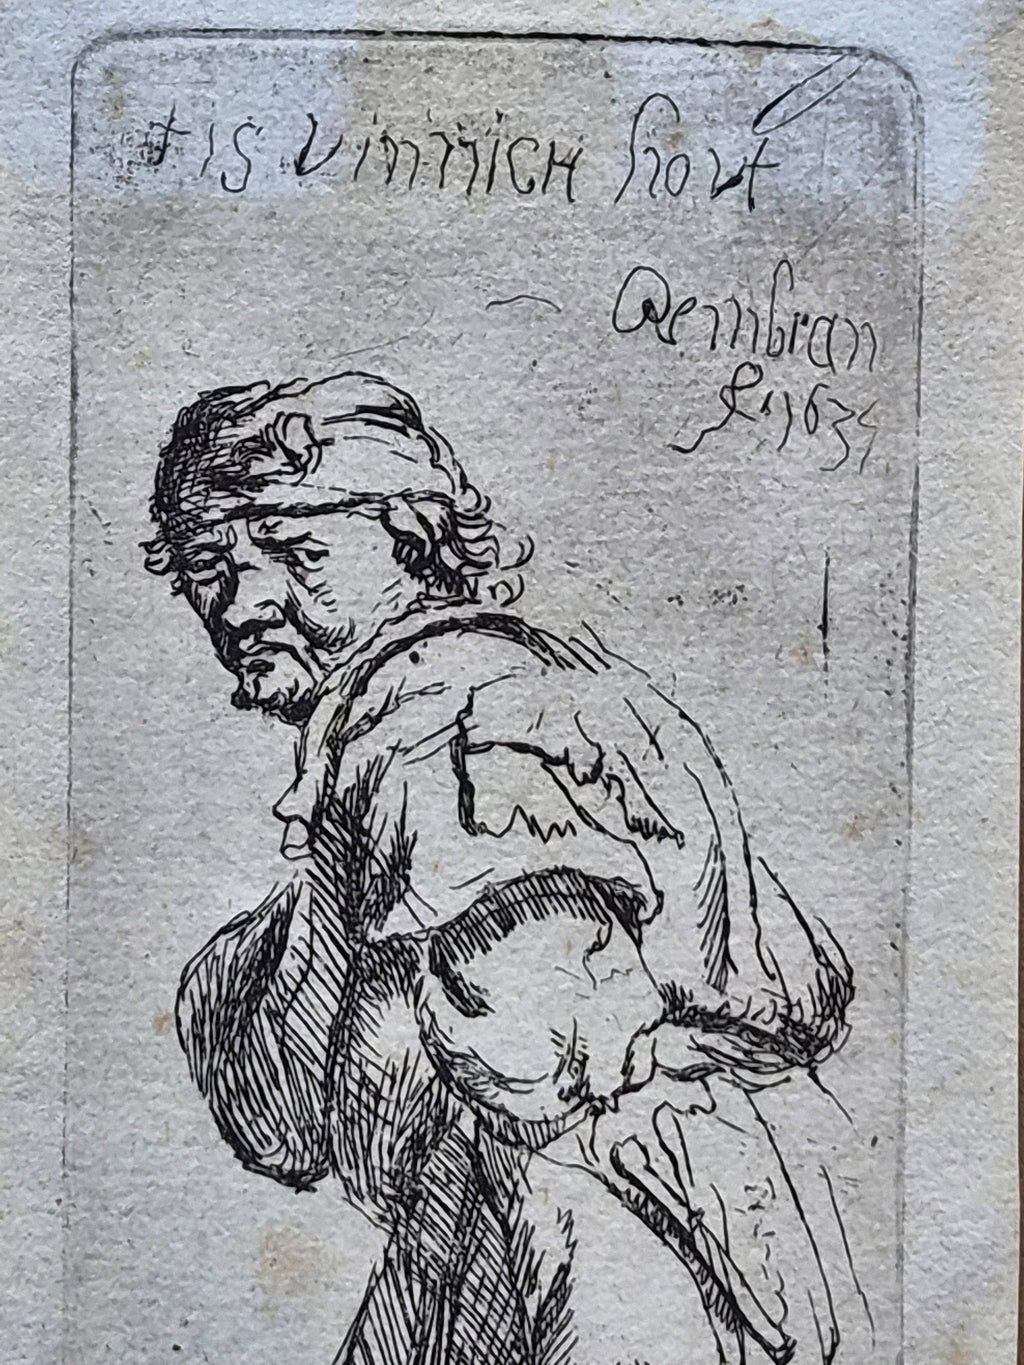 t is vinnich kout
Rembran
f. 1634